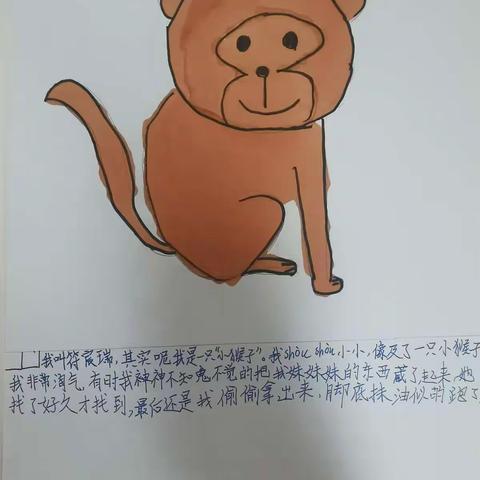 我叫符宸瑞，其实呢我是一只“小猴子”。我shòu shòu小小，像及了一只小猴子
我非常淘气，有时我神神不知鬼不觉的把我妹妹妹的东西藏了起来，她
找了好久才找到，最后还是我偷偷拿出来，脚底抹油似的跑了